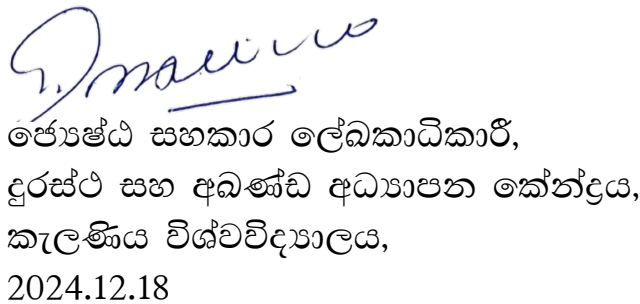 ජ්‍යෙෂ්ඨ සහකාර ලේඛකාධිකාරී,
දුරස්ථ සහ අඛණ්ඩ අධ්‍යාපන කේන්ද්‍රය,
කැලණිය විශ්වවිද්‍යාලය,
2024.12.18